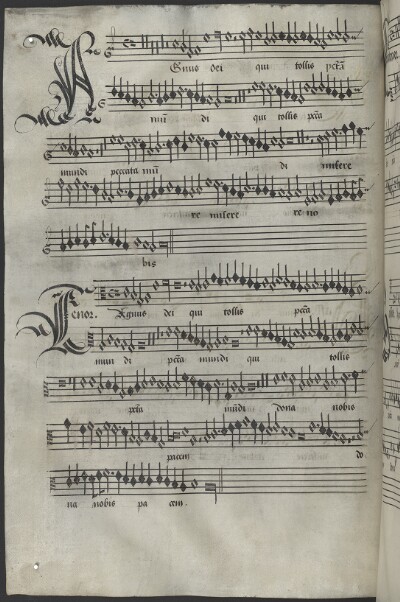 Agnus dei qui tollis pctã
mũ di qui tollis pctã
mundi peccata mũ di misere
re misere re no
bis
Tenor. Agnus dei qui tollis pctã
mun di pctã mundi qui tollis
pctã mũdi dona nobis
pacem do
na nobis pa cem.